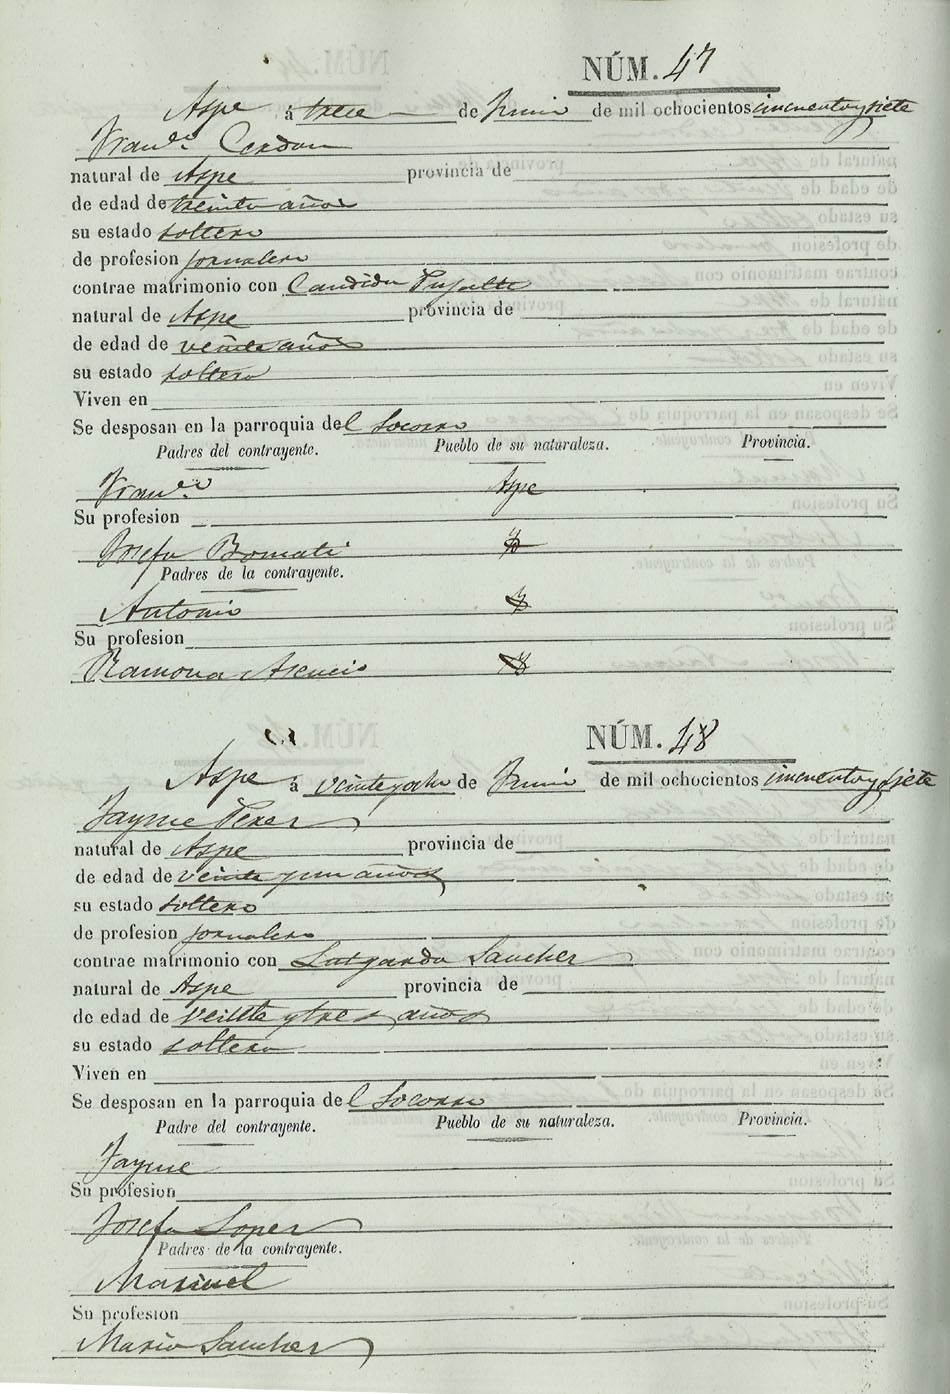 NÚM. 47
Aspe á trece de Junio de mil ochocientos cincuenta y siete
Fran.co Cerdan
natural de Aspe provincia de
de edad de treinta años
su estado soltero
de profesion jornalero
contrae matrimonio con Candida Pujalte
natural de Aspe provincia de
de edad de veinte años
su estado soltera
Viven en
Se desposan en la parroquia del Socorro
Padres del contrayente. Pueblo de su naturaleza. Provincia.
Fran.co Aspe
Su profesion
Josefa Bomati
Padres de la contrayente.
Antonio
Su profesion
Ramona Asencio
NÚM. 48
Aspe á veinte y ocho de Junio de mil ochocientos cincuenta y siete
Jayme Perez
natural de Aspe provincia de
de edad de veinte y un años
su estado soltero
de profesion jornalero
contrae matrimonio con Lutgarda Sanchez
natural de Aspe provincia de
de edad de veinte y tres años
su estado soltera
Viven en
Se desposan en la parroquia del Socorro
Padre del contrayente. Pueblo de su naturaleza. Provincia.
Jayme
Su profesion
Josefa Lopez
Padres de la contrayente.
Manuel
Su profesion
Maria Sanchez